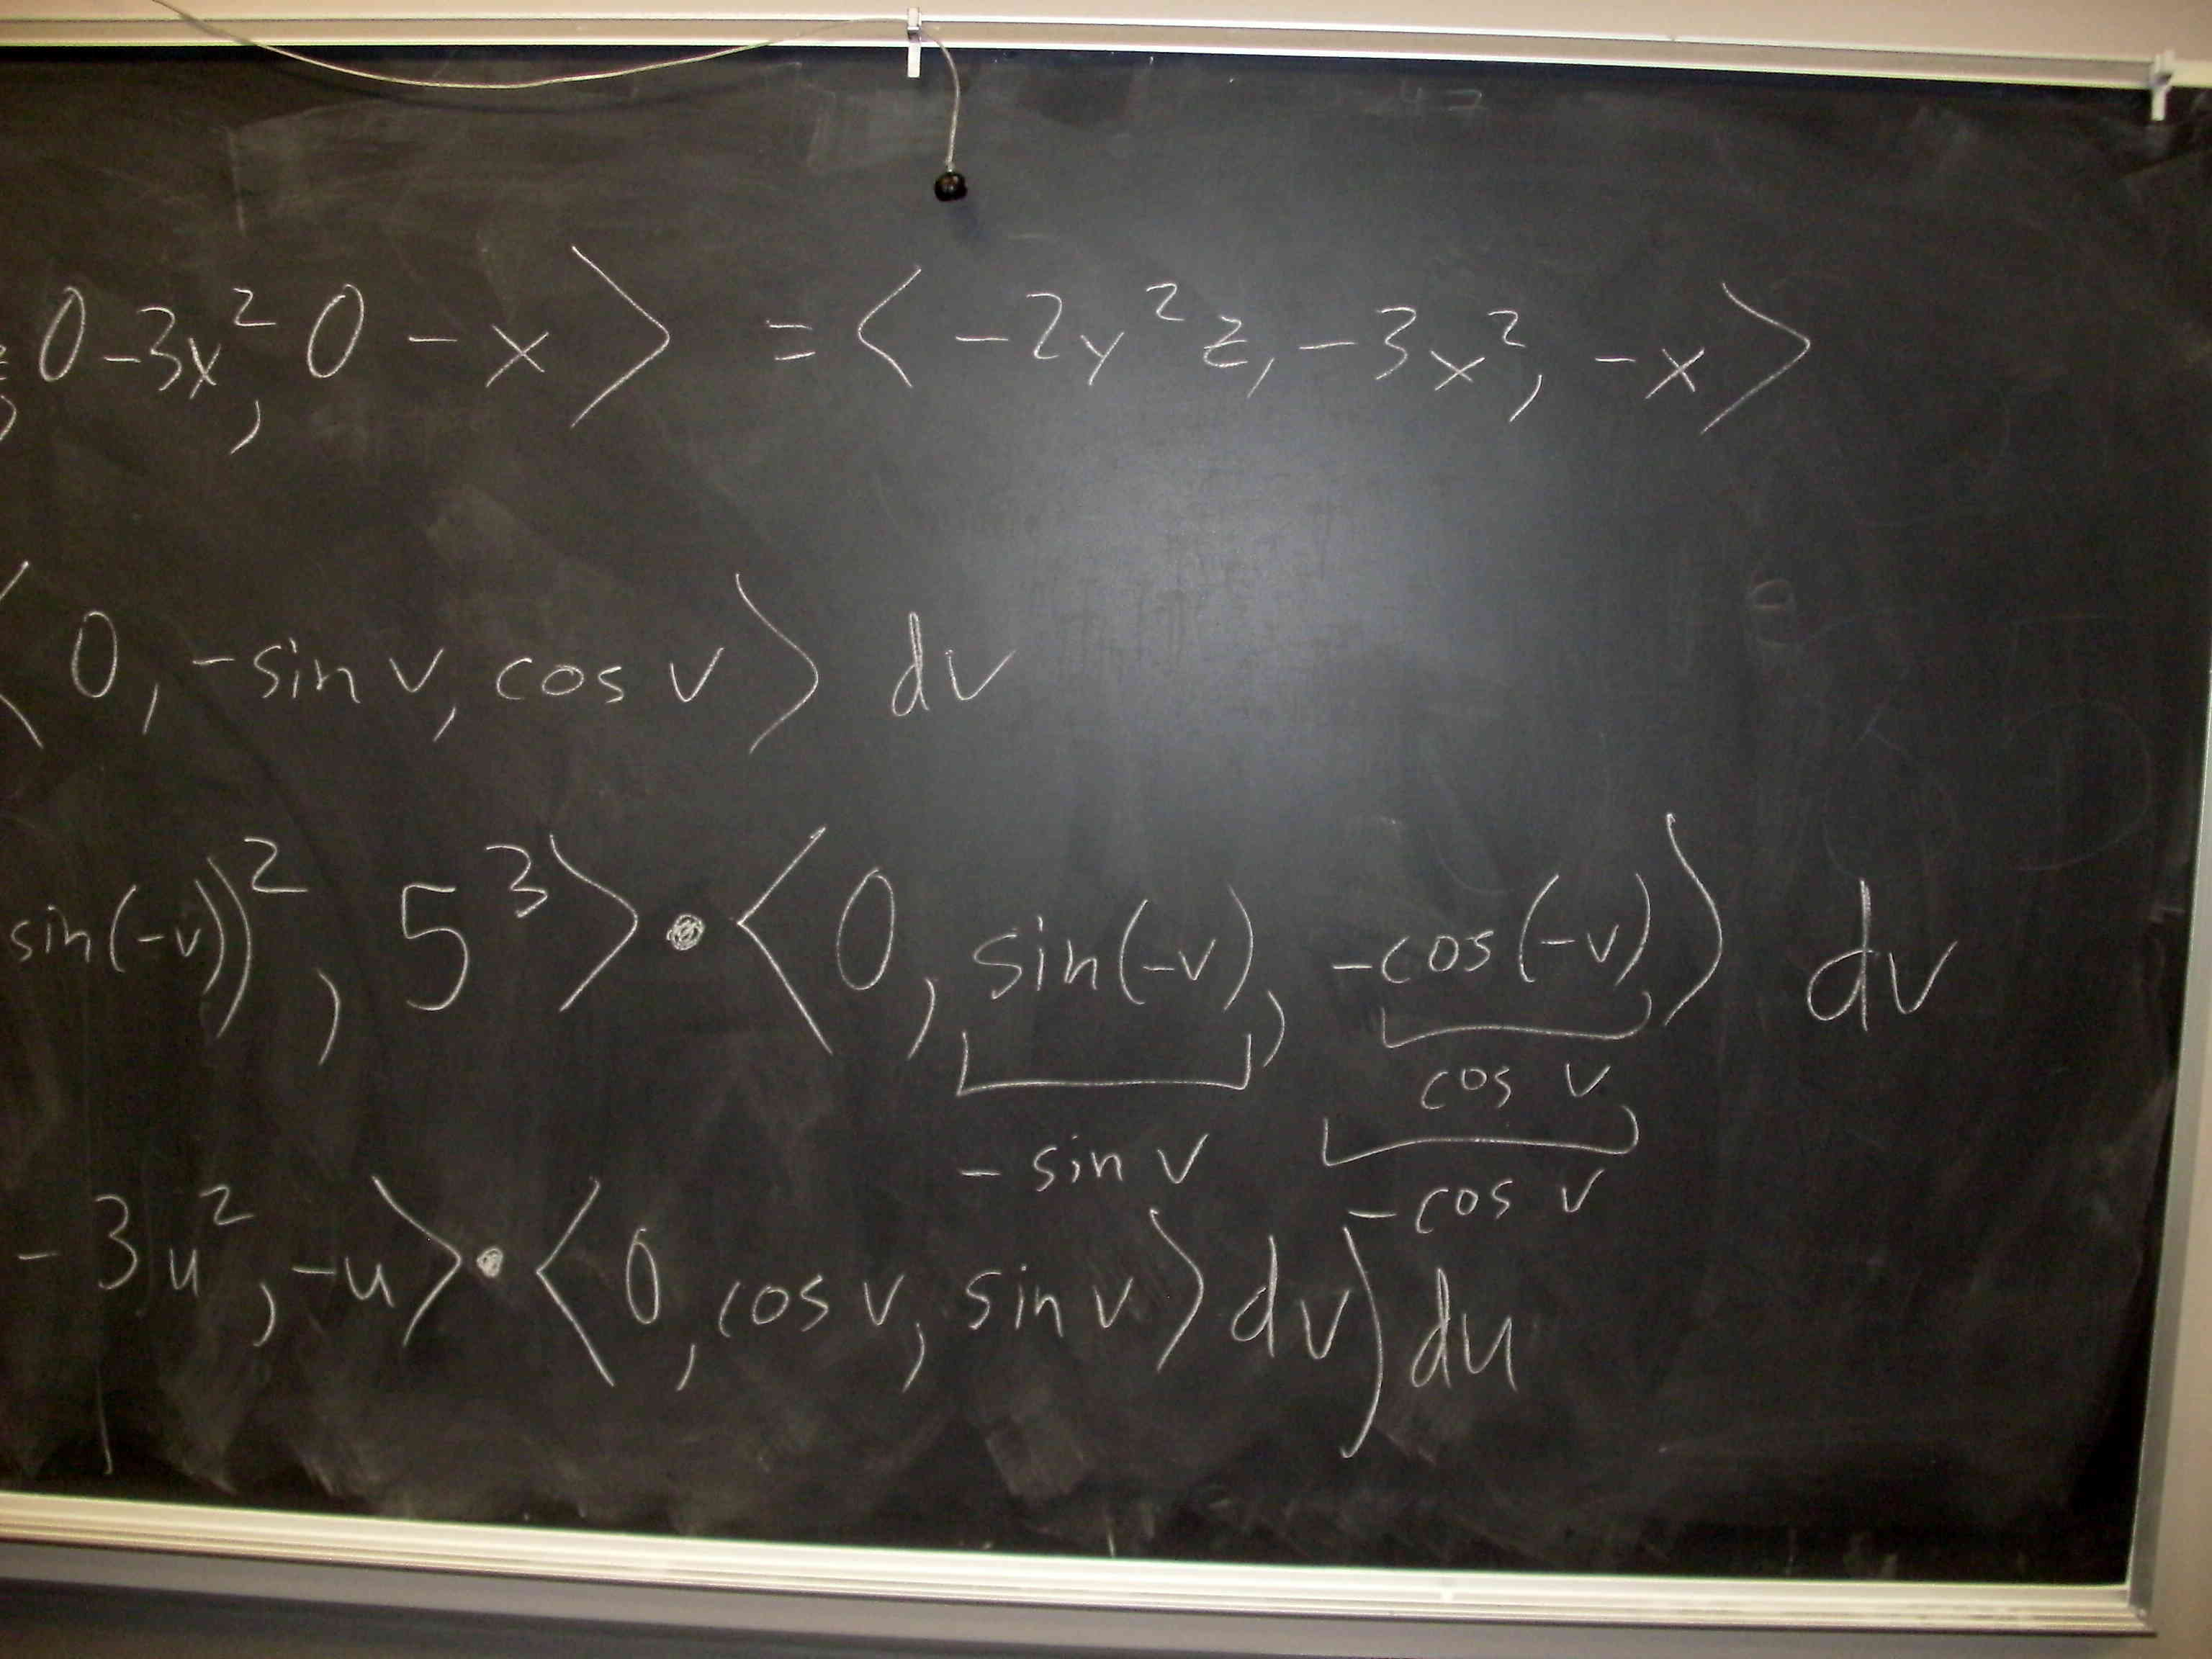 0-3x², 0 - x⟩ = ⟨-2y²z, -3x², -x⟩
⟨0, -sin v, cos v⟩ dv
sin(-v))², 5³⟩ • ⟨0, sin(-v), -cos(-v)⟩ dv
cos v
-sin v
-cos v
-3u², -u⟩ • ⟨0, cos v, sin v⟩ dv) du